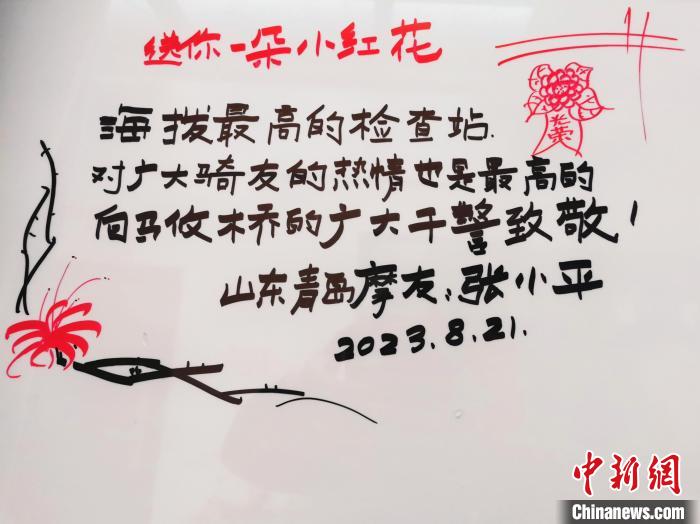 送你一朵小红花
海拨最高的检查站.
对广大骑友的热情也是最高的
向马攸木乔的广大干警致敬！
山东青西摩友:张小平
2023.8.21.
中新网
Chinanews.com